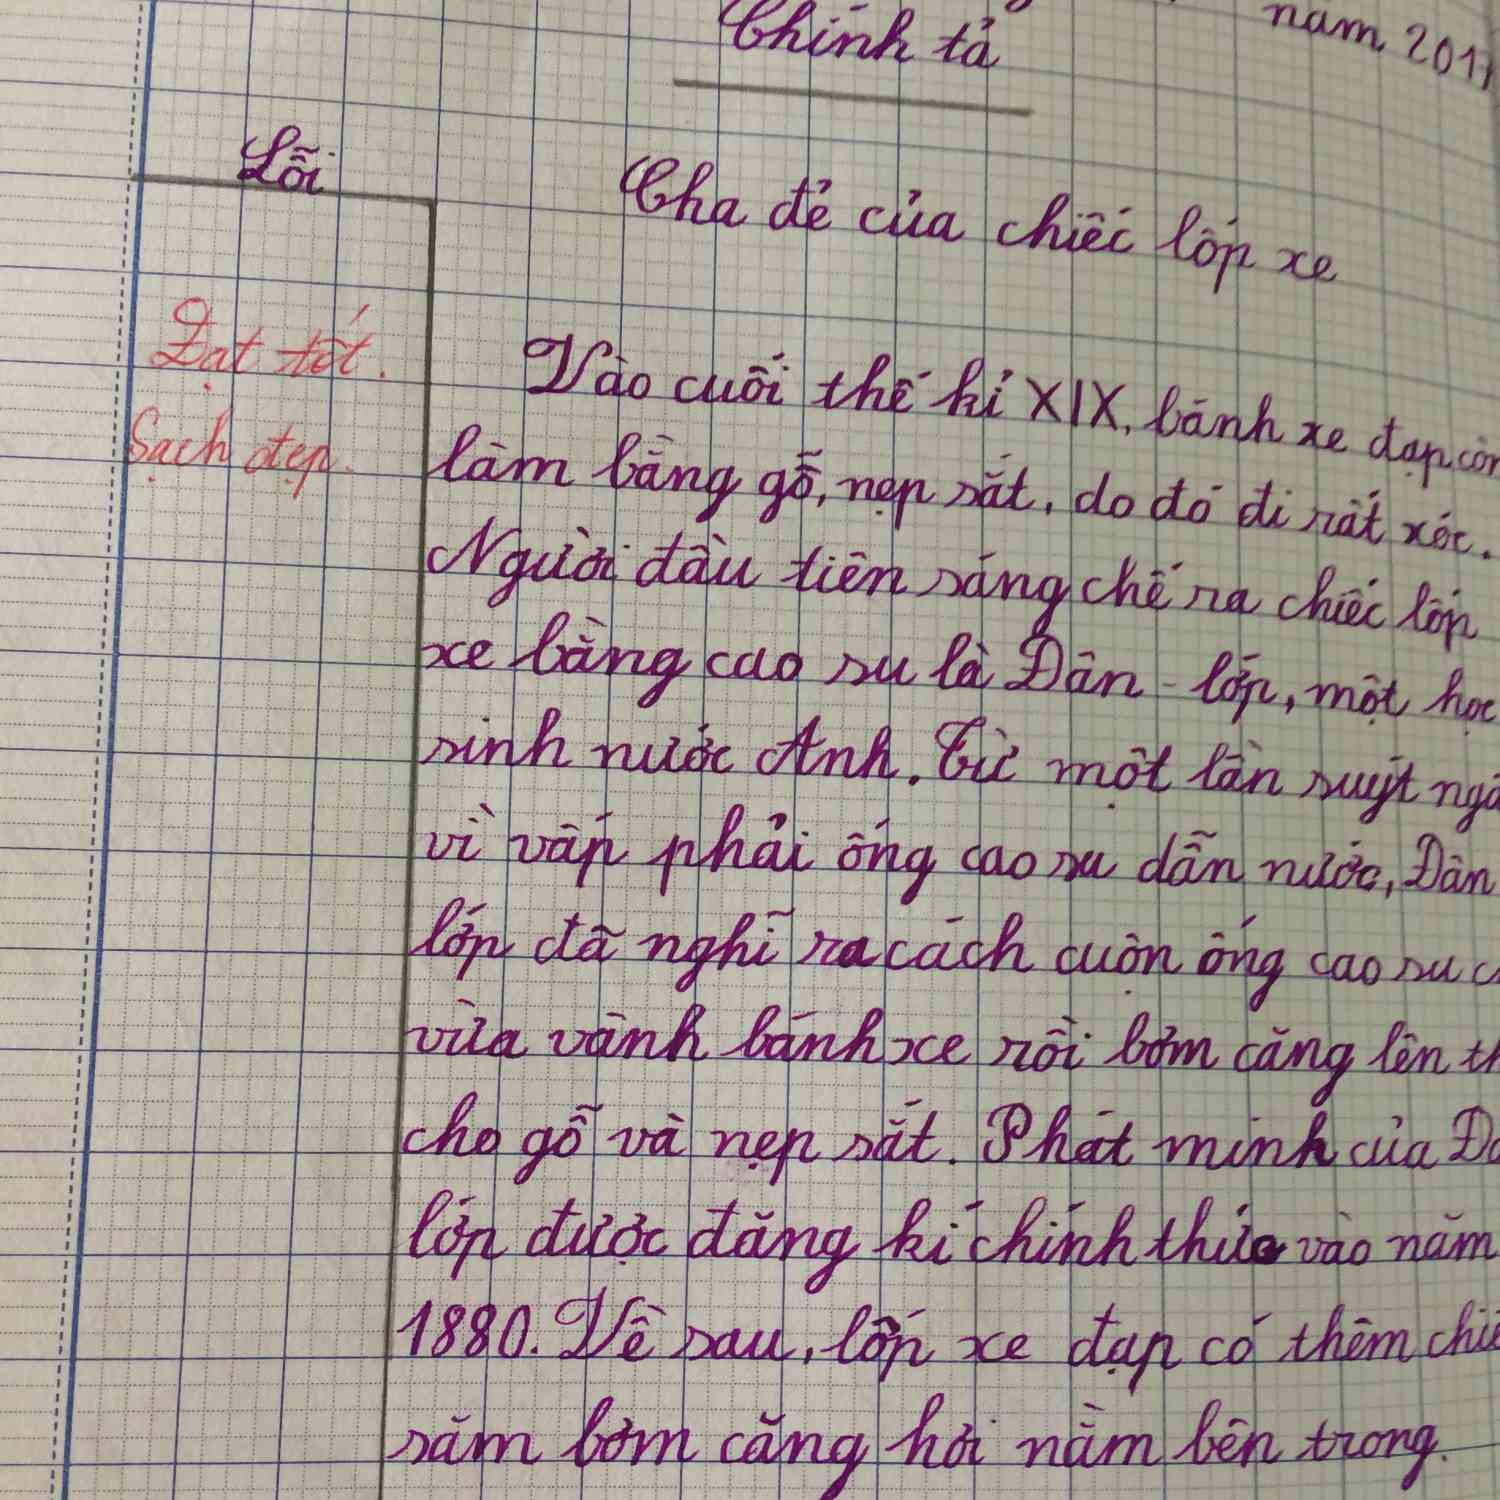 năm 2017
Chính tả
Lỗi
Cha đẻ của chiếc lốp xe
Đạt tốt.
Sạch đẹp.
Vào cuối thế kỉ XIX, bánh xe đạp còn
làm bằng gỗ, nẹp sắt, do đó đi rất xóc.
Người đầu tiên sáng chế ra chiếc lốp
xe bằng cao su là Đân-lốp, một học
sinh nước Anh. Từ một lần suýt ngã
vì vấp phải ống cao su dẫn nước, Đân
lốp đã nghĩ ra cách cuộn ống cao su
vừa vành bánh xe rồi bơm căng lên
cho gỗ và nẹp sắt. Phát minh của
lốp được đăng kí chính thức vào năm
1880. Về sau, lốp xe đạp có thêm
săm bơm căng hơi nằm bên trong.